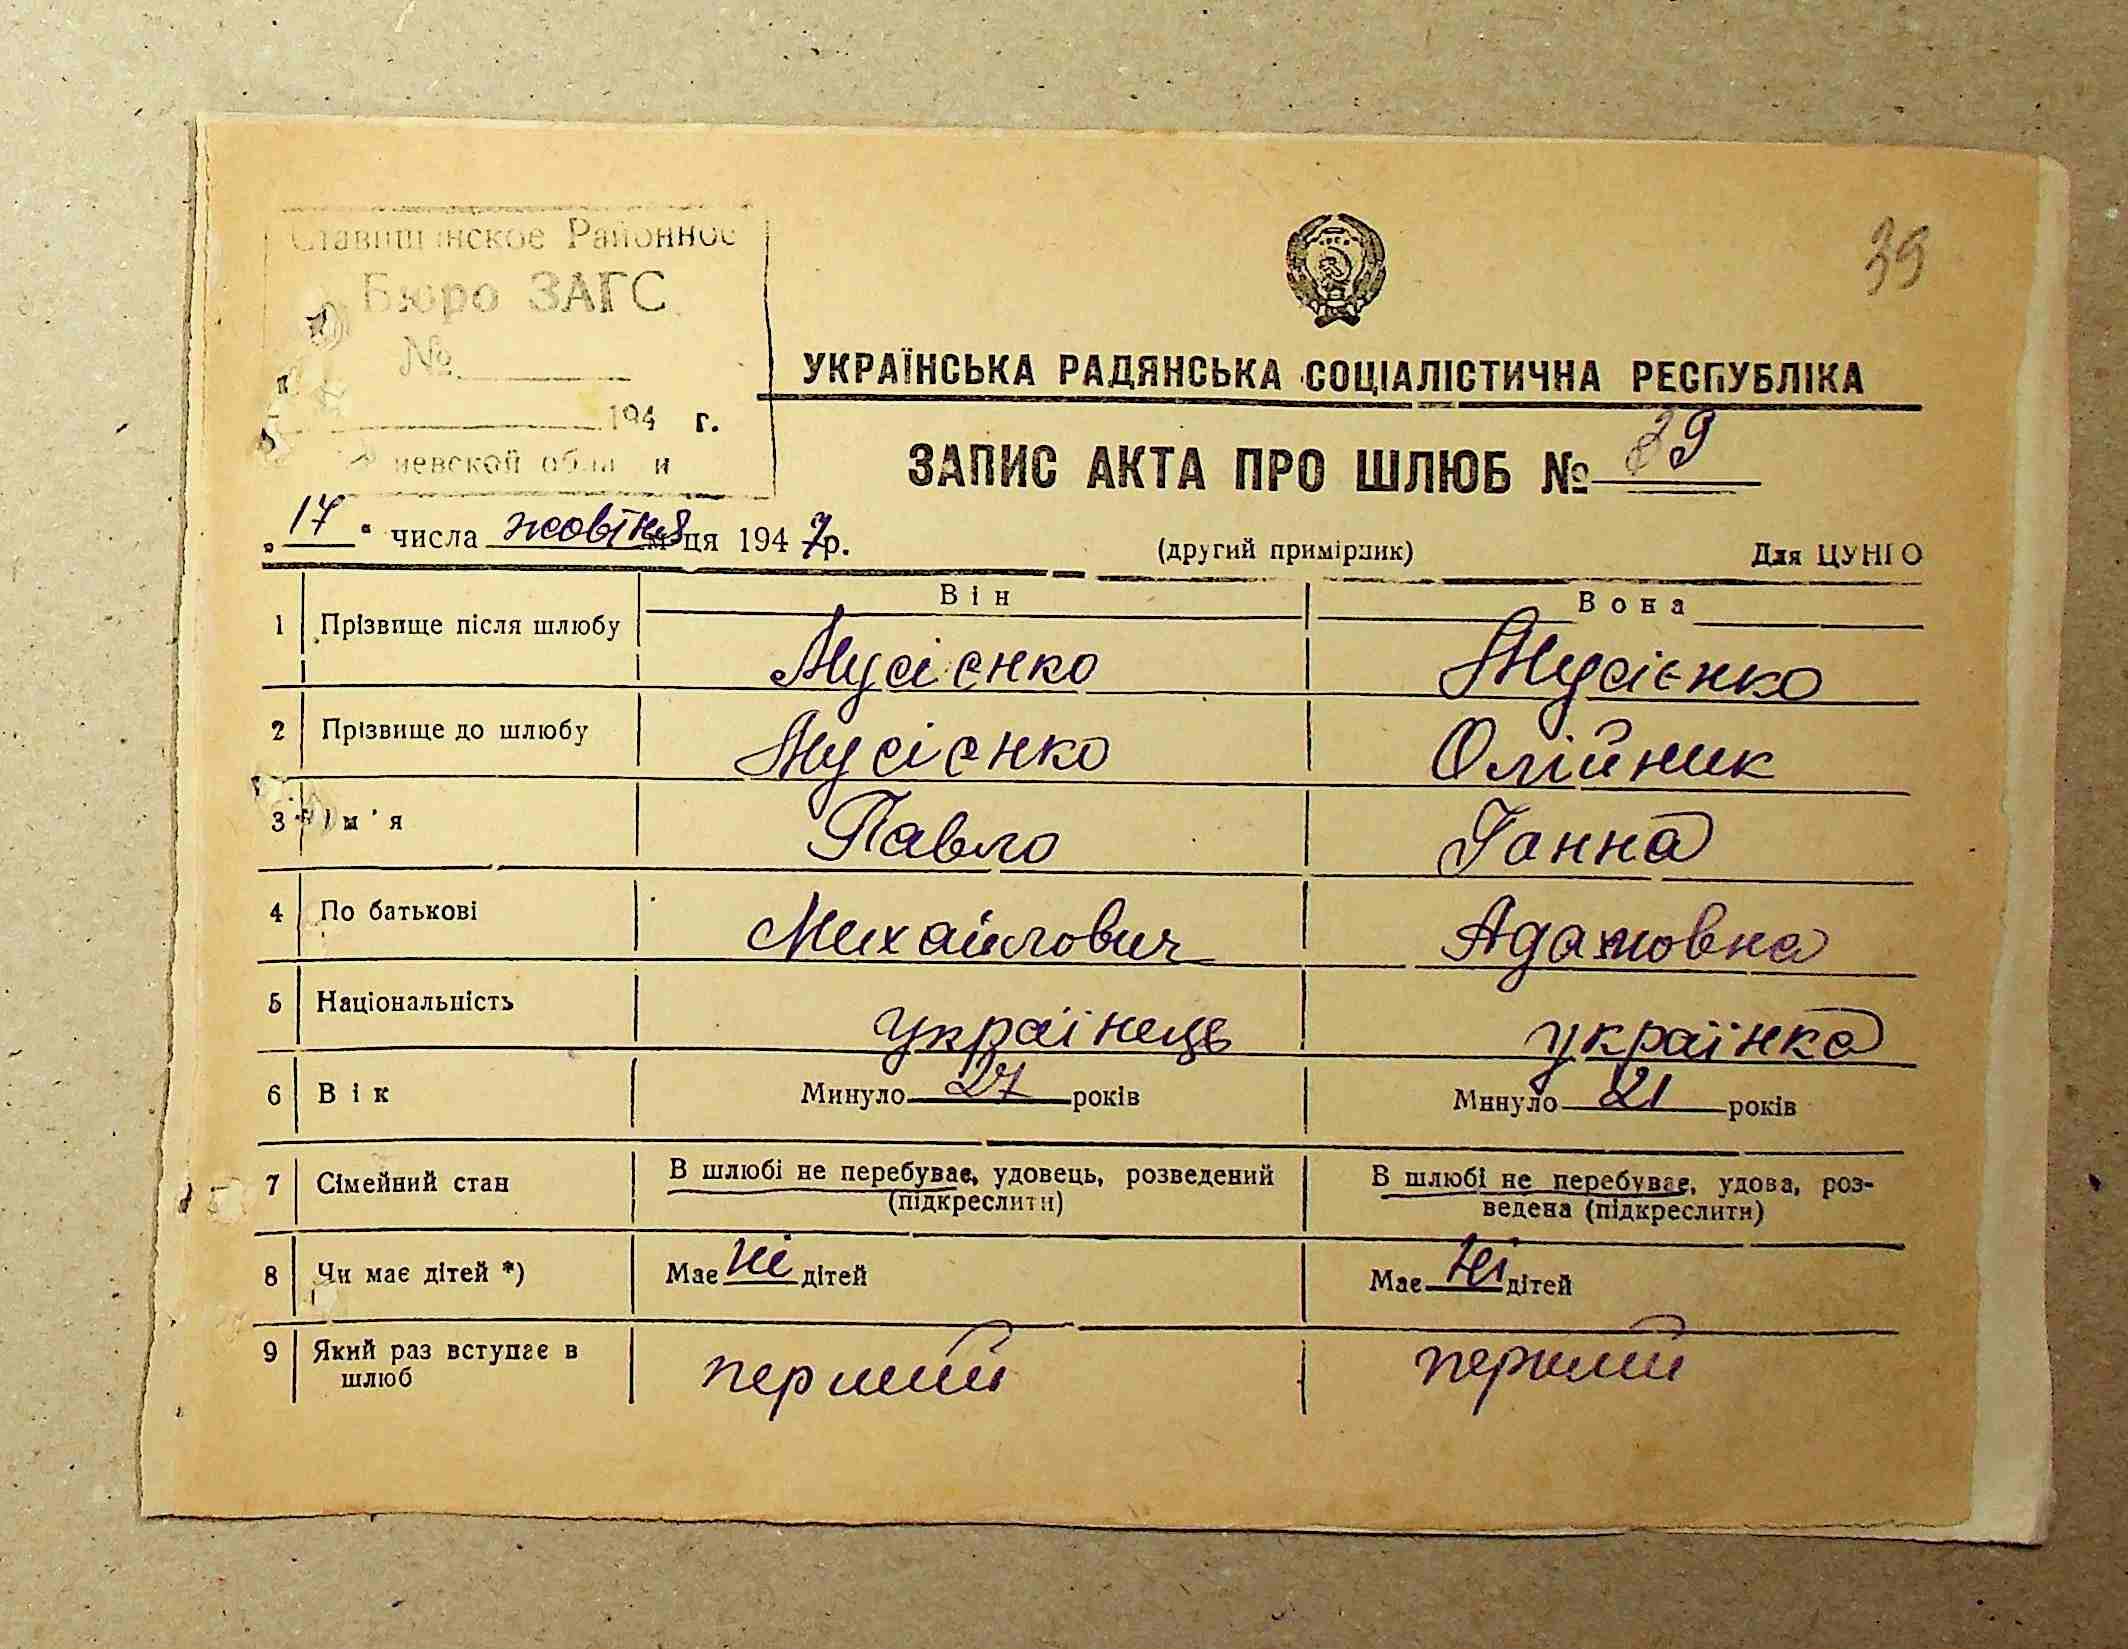 Ставищанское Районное
Бюро ЗАГС
№
194 г.
иевской обла и
39
УКРАЇНСЬКА РАДЯНСЬКА СОЦІАЛІСТИЧНА РЕСПУБЛІКА
ЗАПИС АКТА ПРО ШЛЮБ № 39
„17“ числа жовтня м-ця 1947р. (другий примірник) Для ЦУНГО
Він Вона
1 Прізвище після шлюбу Мусієнко Мусієнко
2 Прізвище до шлюбу Мусієнко Олійник
3 Ім'я Павло Ганна
4 По батькові Михайлович Адамовна
5 Національність українець українка
6 Вік Минуло 27 років Минуло 21 років
7 Сімейний стан В шлюбі не перебуває, удовець, розведений (підкреслити) В шлюбі не перебуває, удова, роз-
ведена (підкреслити)
8 Чи має дітей *) Має ні дітей Має ні дітей
9 Який раз вступає в шлюб перший перший